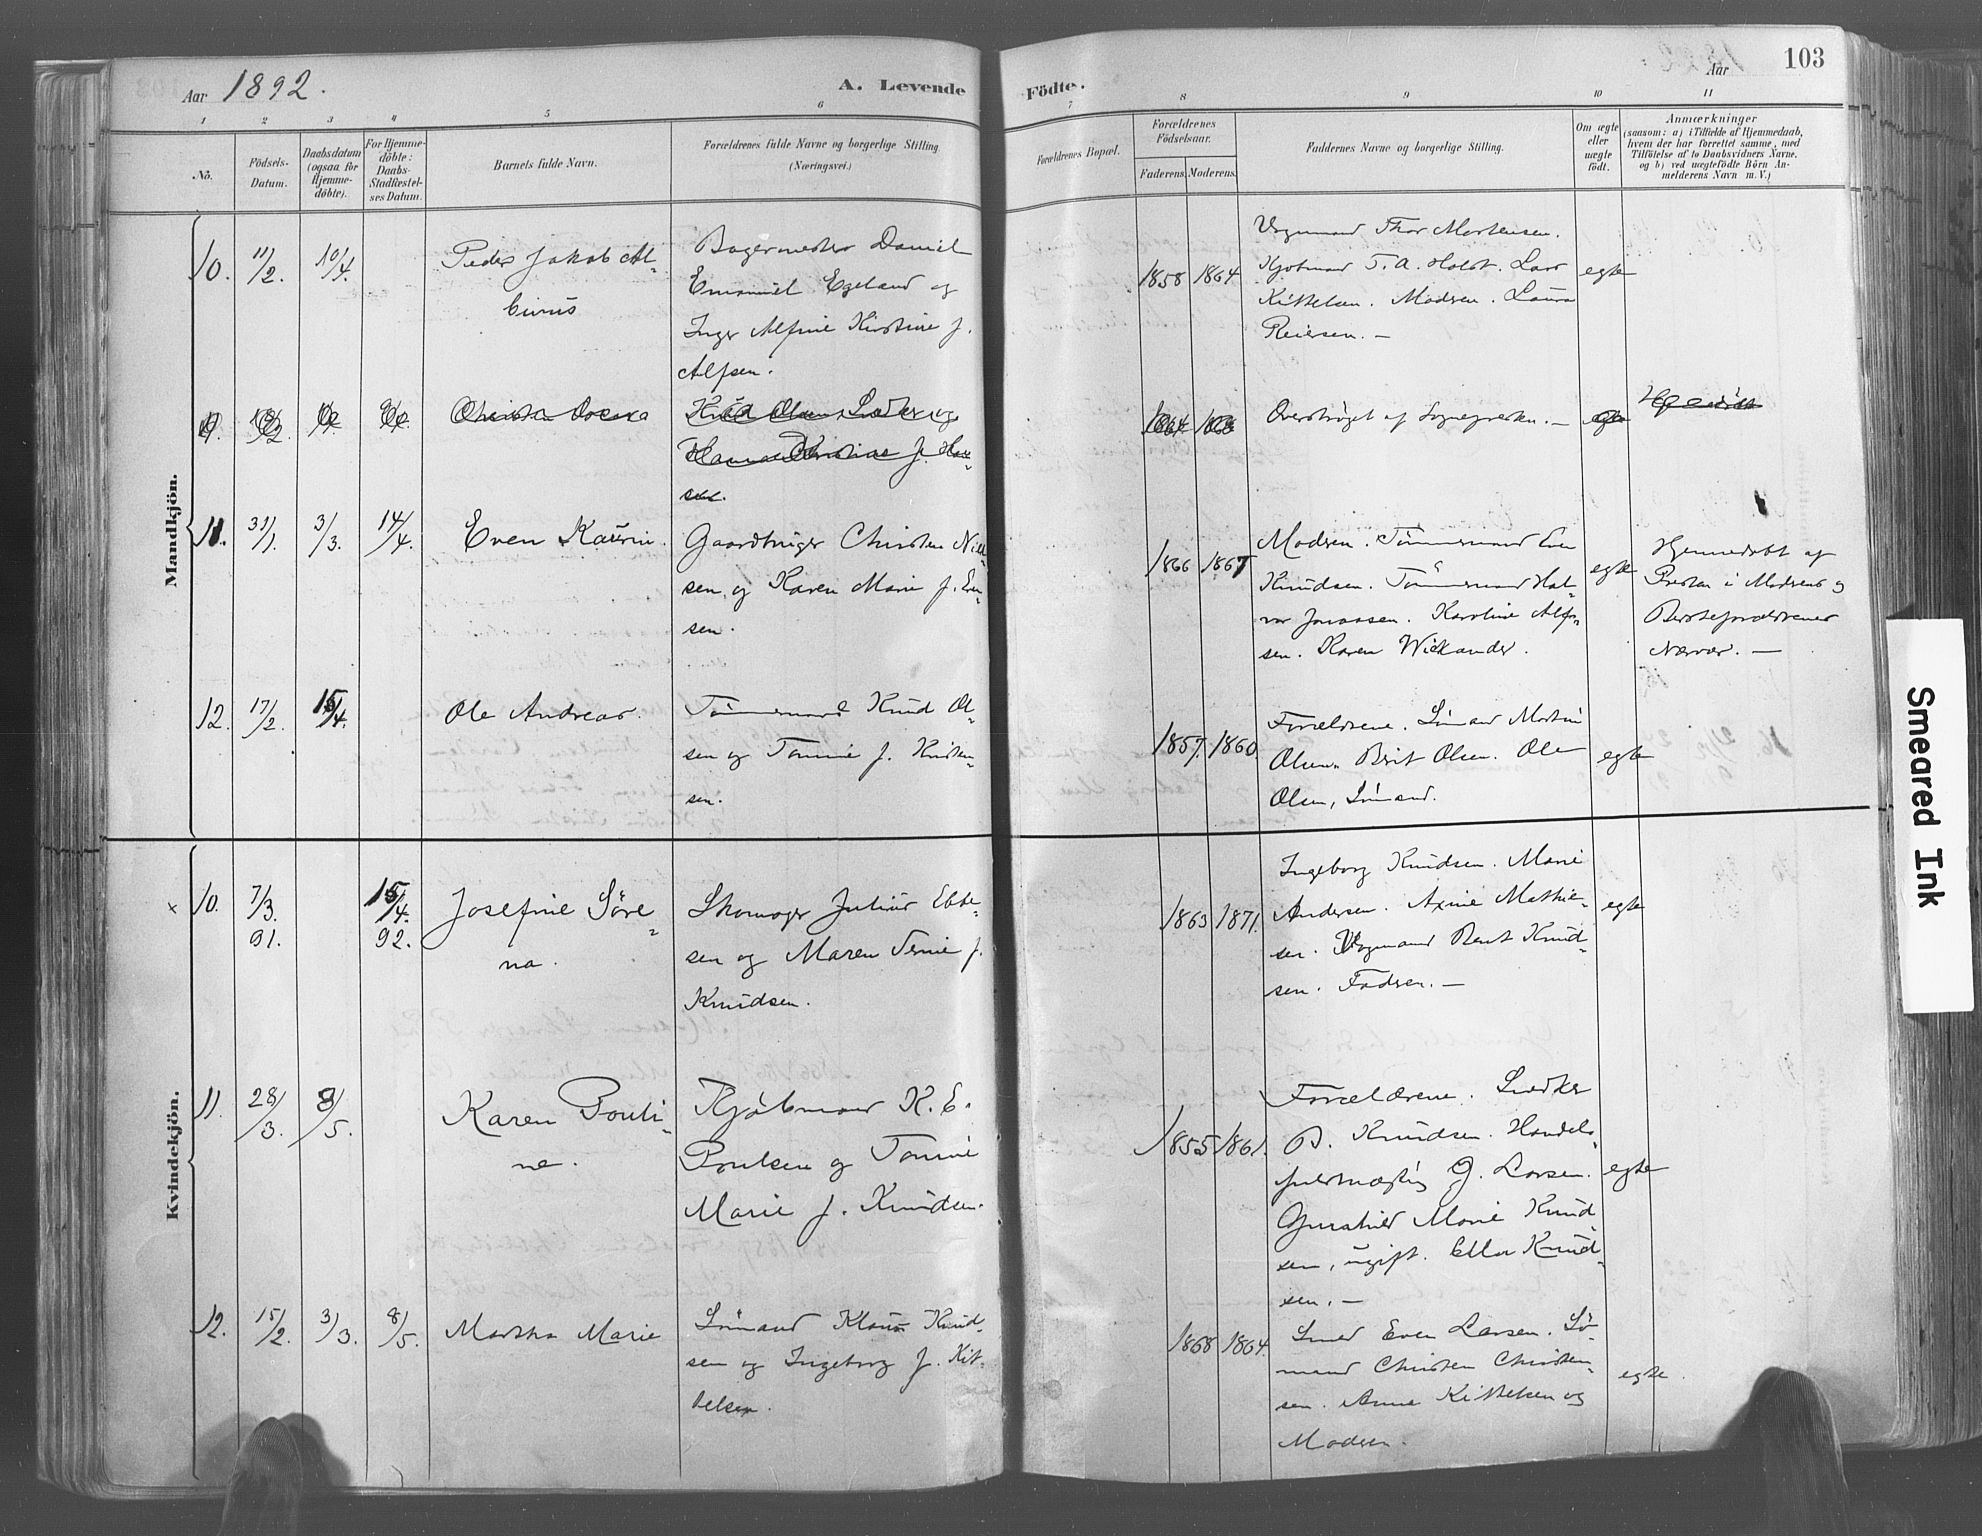 Aar 1892.
A. Levende
Födte.
Aar
103
1 2 3 4 5 6 7 8 9 10 11
Nò.
Födsels-
Datum.
Daabsdatum
(ogsaa for
Hjemme-
döbte).
For Hjemme-
döbte:
Daabs-
Stadfæstel-
ses Datum.
Barnets fulde Navn.
Forældrenes fulde Navne og borgerlige Stilling
(Næringsvei.)
Forældrenes Bopæl.
Forældrenes
Födselsaar.
Faderens. Moderens.
Faddernes Navne og borgerlige Stilling.
Om ægte
eller
uægte
födt.
Anmærkninger
(saasom: a) i Tilfælde af Hjemmedaab,
hvem der har forrettet samme, med
Tilföielse af to Daabsvidners Navne,
og b) ved uægtefödte Börn An-
melderens Navn m. V.)
Mandkjön.
10. 11/2. 10/4.
Peder Jakob Al-
binus
Bagermester Daniel
Emanuel Egeland og
Inger Alfine Kirstine f.
Alfsen.
1858 1864
Vognmand Thor Mortensen.
Kjøbmand T. A. Holst. Lars
Kittelsen. Modren. Laura
Reiersen. —
egte
Knud Olsen, og
Hanna Kirstine f. Han-
sen.
1864
Overstrøget af Sognepresten. —
11. 31/1. 3/3. 14/4.
Even Kaurin.
Gaardbruger Christen Niel-
sen og Karen Marie f. Even-
sen.
1866 1867
Modren. Tømmermand Even
Knudsen. Tømmermand Hal-
vor Jonassen. Karoline Alf-
sen. Karen Wickander.
egte
Hjemmedøbt af
Presten i Modrens og
Bersteforældrenes
Nærvær. —
12. 17/2. 15/4.
Ole Andreas.
Tømmermand Knud Ol-
sen og Tomine f. Kristen-
sen.
1857. 1860.
Forældrene. Sømand Martin
Olsen. Berit Olsen. Ole
Olsen, Sømand.
egte
Kvindekjön.
x 10. 7/3. 91. 15/4. 92.
Josefine Søre-
na.
Skomager Julius Ebbe-
sen og Maren Temie f.
Knudsen.
1863 1871.
Ingeborg Knudsen. Marie
Andersen. Axine Mathie-
sen. Vognmand Bent Knud-
sen. Fadren. —
egte
11. 28/3. 8/5.
Karen Pouli-
ne.
Kjøbmand K. E.
Poulsen og Tomine
Marie f. Knudsen.
1855 1861.
Forældrene. Snedker
B. Knudsen. Handels-
fuldmægtig G. Larsen.
Gunhild Marie Knud-
sen, ugift. Ella Knud-
sen. —
egte
12. 15/2. 3/3. 8/5.
Martha Marie
Sømand Klaus Knud-
sen og Ingeborg f. Kit-
telsen.
1868 1864.
Smed Even Larsen. Sø-
mand Christen Christen-
sen. Anne Kittelsen og
Modren.
egte.
Smeared Ink